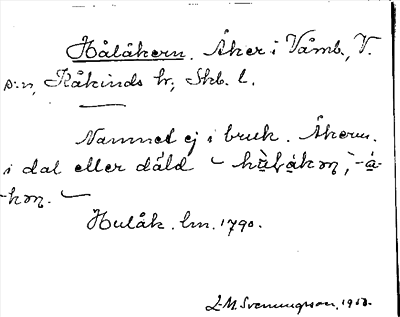 Hålåkern. Åker i Våmb, V.
s:n, Kåkinds hd, Skb. l.
Namnet ej i bruk. Åkern.
i dal eller däld – hålåkɳ, -å-
kɳ. –
Hulåk. lm. 1790.
L-M. Svenungsson. 1950.